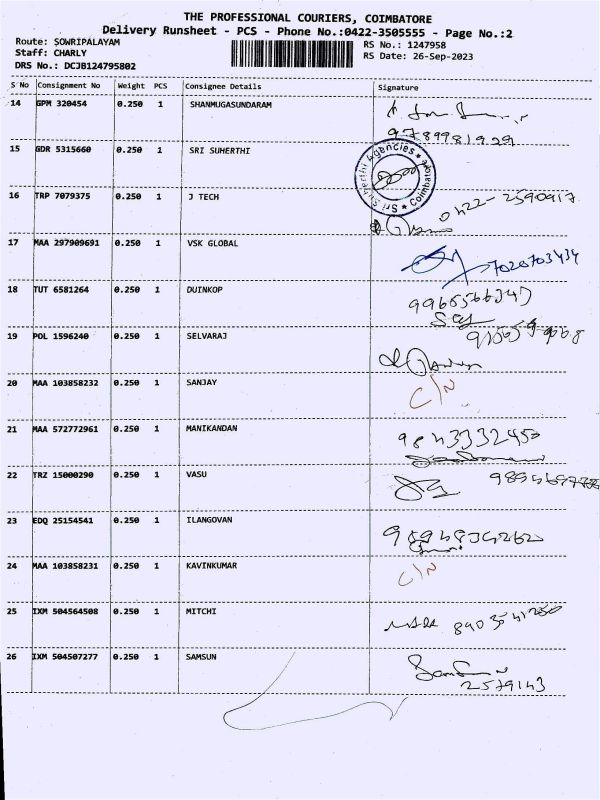 THE PROFESSIONAL COURIERS, COIMBATORE
Delivery Runsheet - PCS - Phone No.:0422-3505555 - Page No.:2
Route: SOWRIPALAYAM
Staff: CHARLY
DRS No.: DCJB124795802
RS No.: 1247958
RS Date: 26-Sep-2023
S No Consignment No Weight PCS Consignee Details Signature
14 GPM 320454 0.250 1 SHANMUGASUNDARAM
9789981929
15 GDR 5315660 0.250 1 SRI SUHERTHI
Sri Suherthi Agencies * Coimbatore *
16 TRP 7079375 0.250 1 J TECH
0422-2590917
17 MAA 297909691 0.250 1 VSK GLOBAL
7020703434
18 TUT 6581264 0.250 1 DUINKOP
19 POL 1596240 0.250 1 SELVARAJ
20 MAA 103858232 0.250 1 SANJAY
C/N
21 MAA 572772961 0.250 1 MANIKANDAN
9843332450
22 TRZ 15000290 0.250 1 VASU
23 EDQ 25154541 0.250 1 ILANGOVAN
24 MAA 103858231 0.250 1 KAVINKUMAR
C/N
25 IXM 504564508 0.250 1 MITCHI
26 IXM 504507277 0.250 1 SAMSUN
2579143